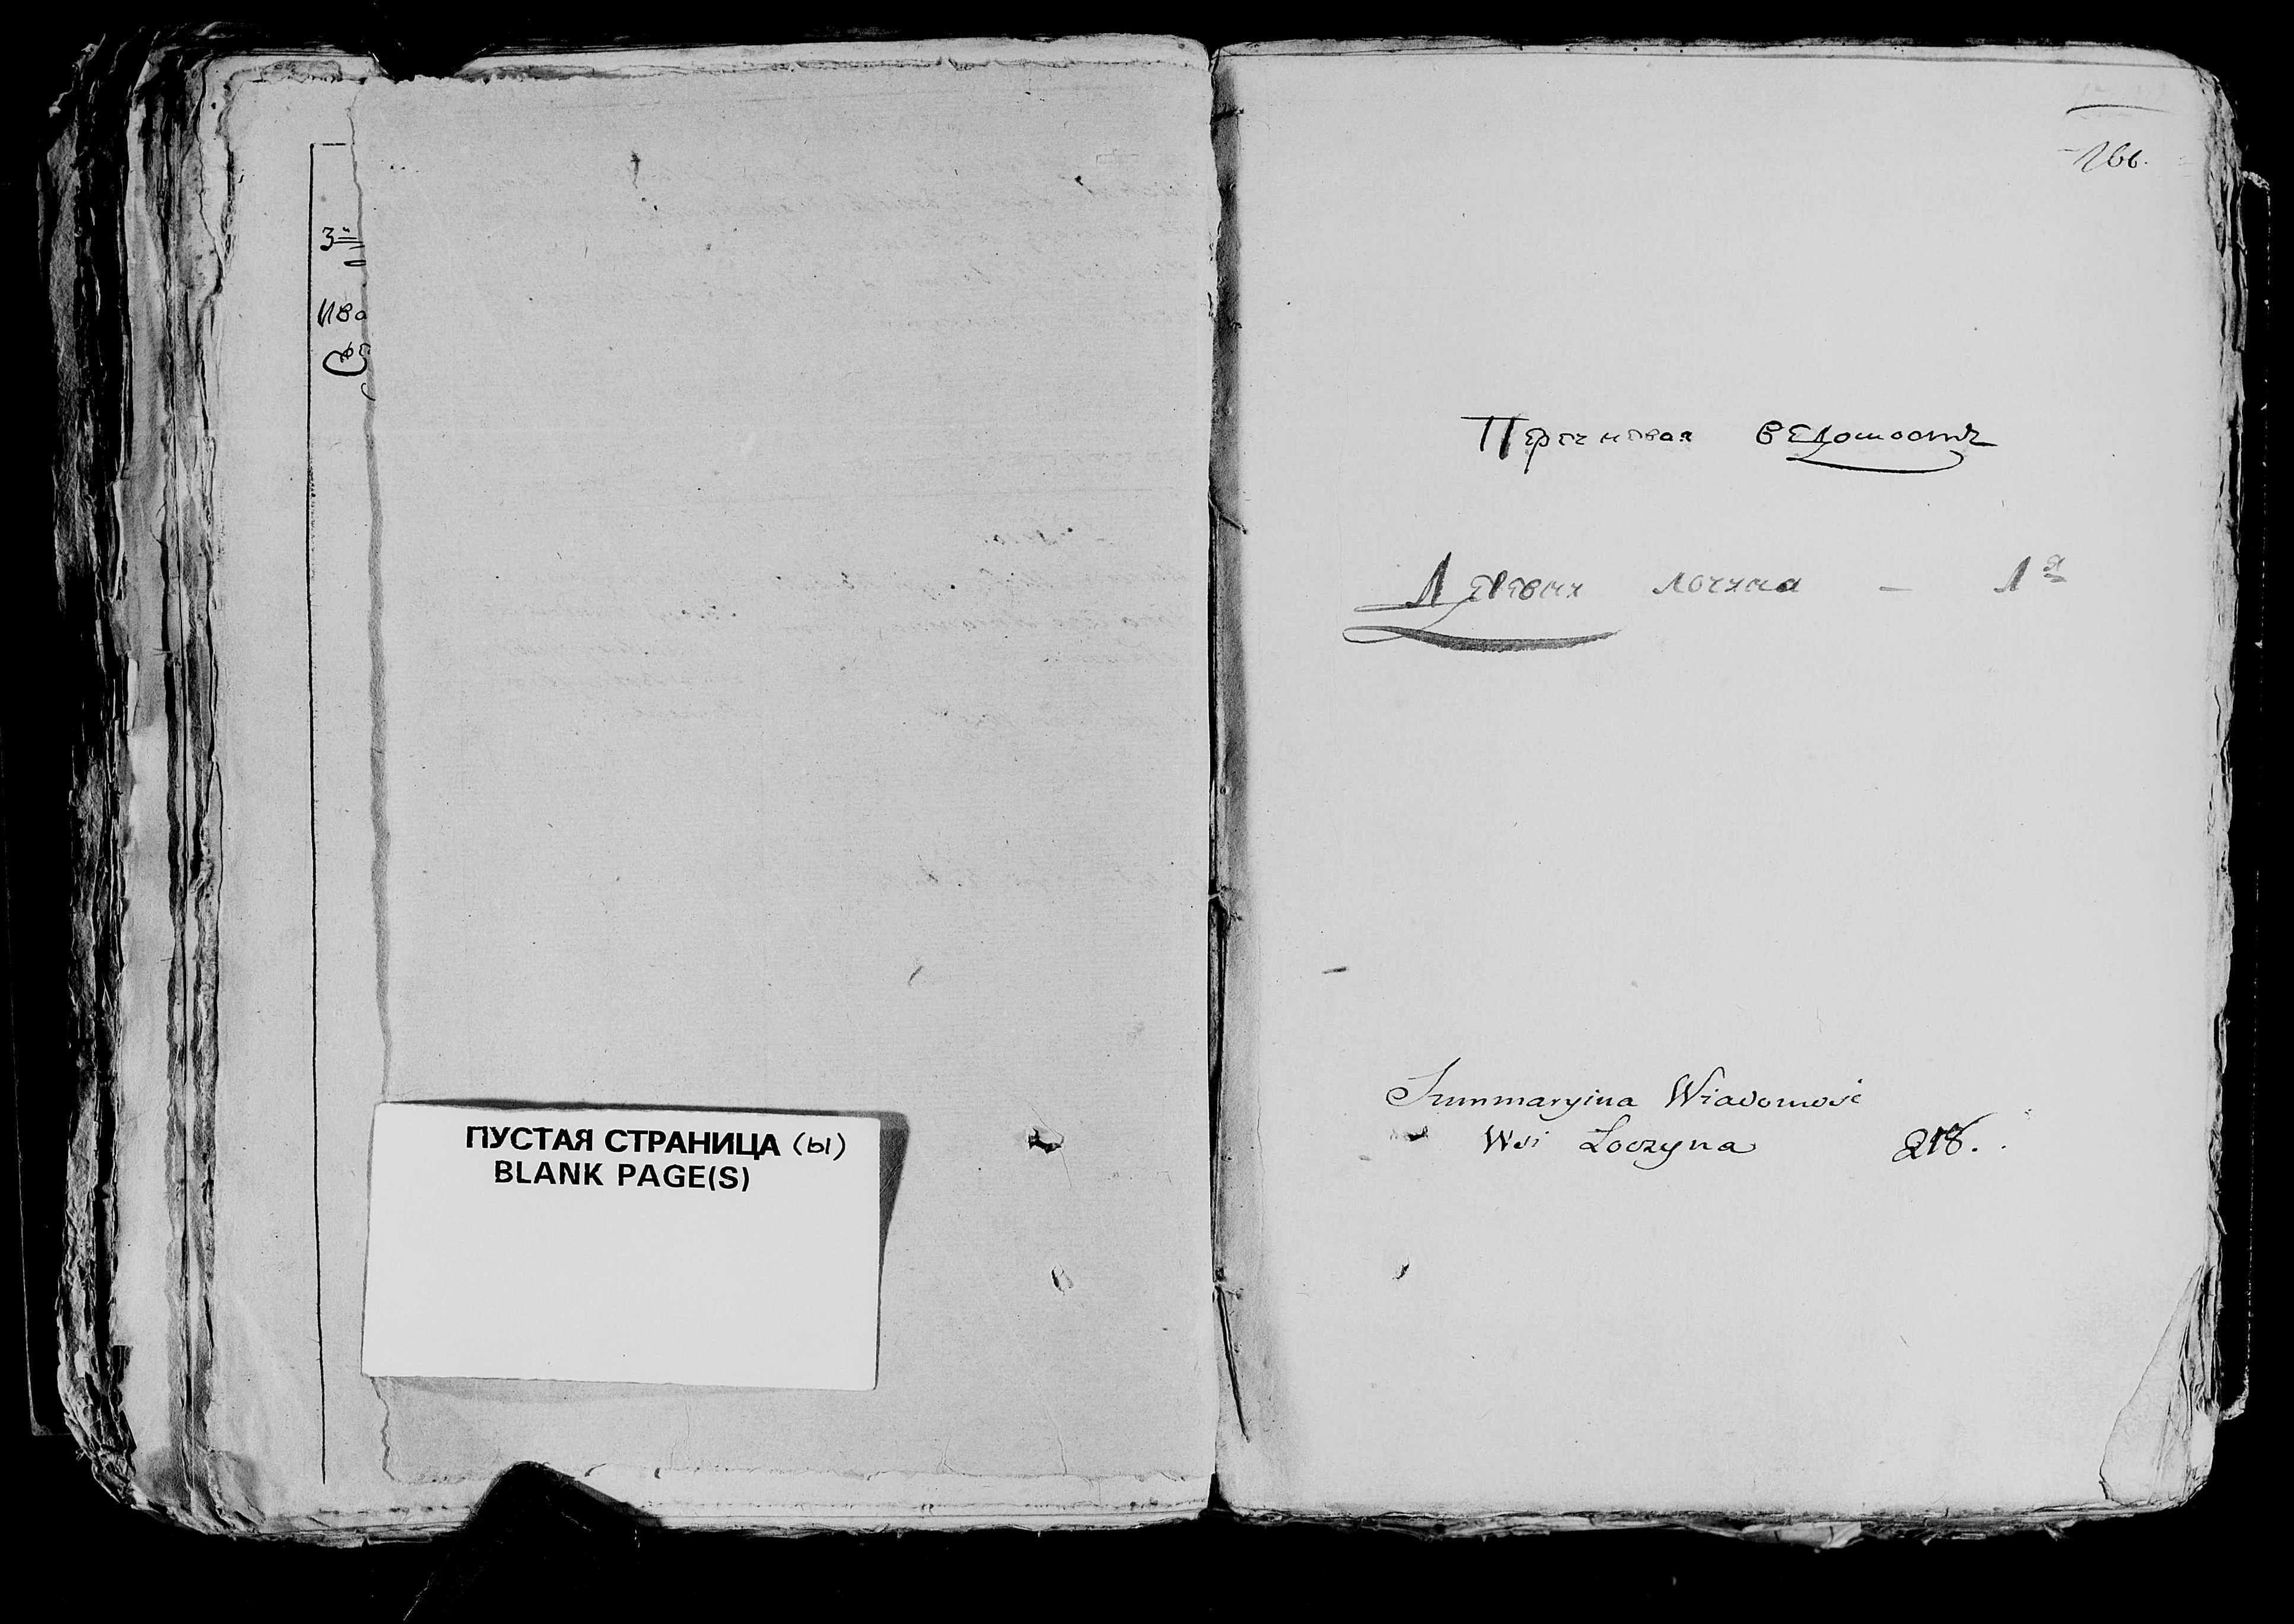 3й
Ива
ПУСТАЯ СТРАНИЦА (ы)
BLANK PAGE(S)
166.
Перечновая ведомость
Деревни Лочина — 1я
Summaryina Wiadomość
Wsi Łoczyna 218.